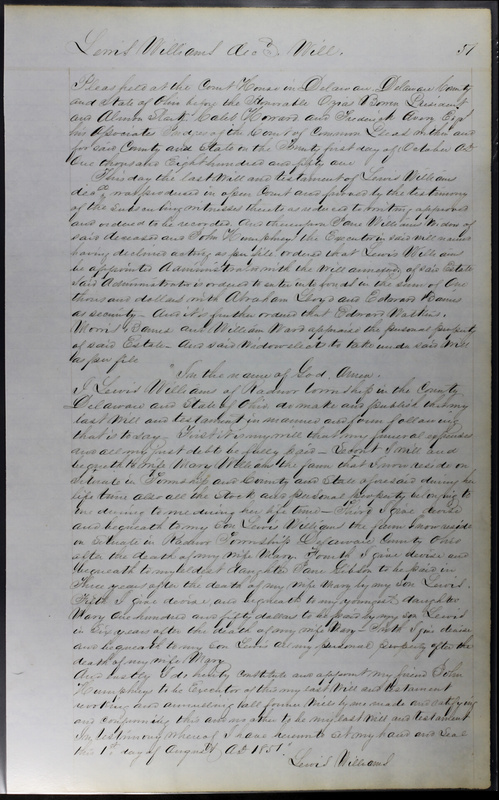 Lewis Williams decd Will. 51
Pleas held at the Court House in Delaware Delaware County
and State of Ohio before the Honorable Ozias Bowen President
and Almon Stark Caleb Howard and Frederick Avery Esqs
his Associates Judges of the Court of Common Pleas within and
for said County and State on the Twenty first day of October AD
One thousand Eight hundred and fifty one
This day the last Will and testament of Lewis Williams
decd was produced in open Court and proved by the testimony
of the subscribing witnesses thereto as reduced to writing approved
and ordered to be recorded. And thereupon Jane Williams Widow of
said deceased and John Humphrey the Executor in said will named
having declined acting as per file ordered that Lewis William
be appointed Administrator with the Will annexed of said Estate
Said Administrator is ordered to enter into bond in the sum of One
thousand dollars with Abraham Lloyd and Edward Eames
as security - And it is further ordered that Edward Watkins,
Morris Eames and William Ward appraise the personal property
of said Estate - And said Widow elects to take under said Will
as per file
In the name of God, Amen.
I Lewis Williams of Radnor township in the County
Delaware and State of Ohio, do make and publish this my
last Will and testament in manner and form following
that is to say - First it is my will that my funeral expenses
and all my just debts be fully paid - Second I will and
bequeath to Wife Mary Williams the farm that I now reside on
situate in Township and County and State aforesaid during her
life time also all the Stock and personal property belonging to
me during her life time - Third I give devise
and bequeath to my Son Lewis Williams the farm I now reside
on situate in Radnor Township Delaware County Ohio
after the death of my wife Mary. Fourth I give devise and
bequeath to my eldest daughter Jane Gibson to be paid in
three years after the death of my wife Mary by my son Lewis.
Fifth I give devise and bequeath to my youngest daughter
Mary One hundred and fifty dollars to be paid by my son Lewis
in Six years after the death of my wife Mary - Sixth I give devise
and bequeath to my son Lewis all my personal property after the
death of my wife Mary
And lastly I do hereby constitute and appoint my friend John
Humphreys to be Executor of this my last Will and testament
revoking and annulling all former Wills by me made and ratifying
and confirming this and no other to be my last Will and testament
In testimony whereof I have hereunto set my hand and seal
this 1st day of August AD 1851.
Lewis Williams